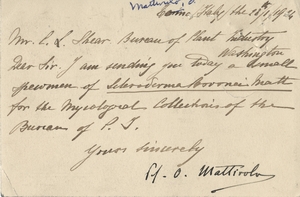 Mattirolo, O
Italy, the 18th/1, 1924
Mr. C. L. Shear Bureau of Plant Industry
Washington
Dear Sir. I am sending you today a small
specimen of Scleroderma Matt
for the Mycological Collections of the
Bureau of P. I.
Yours sincerely
O. Mattirolo